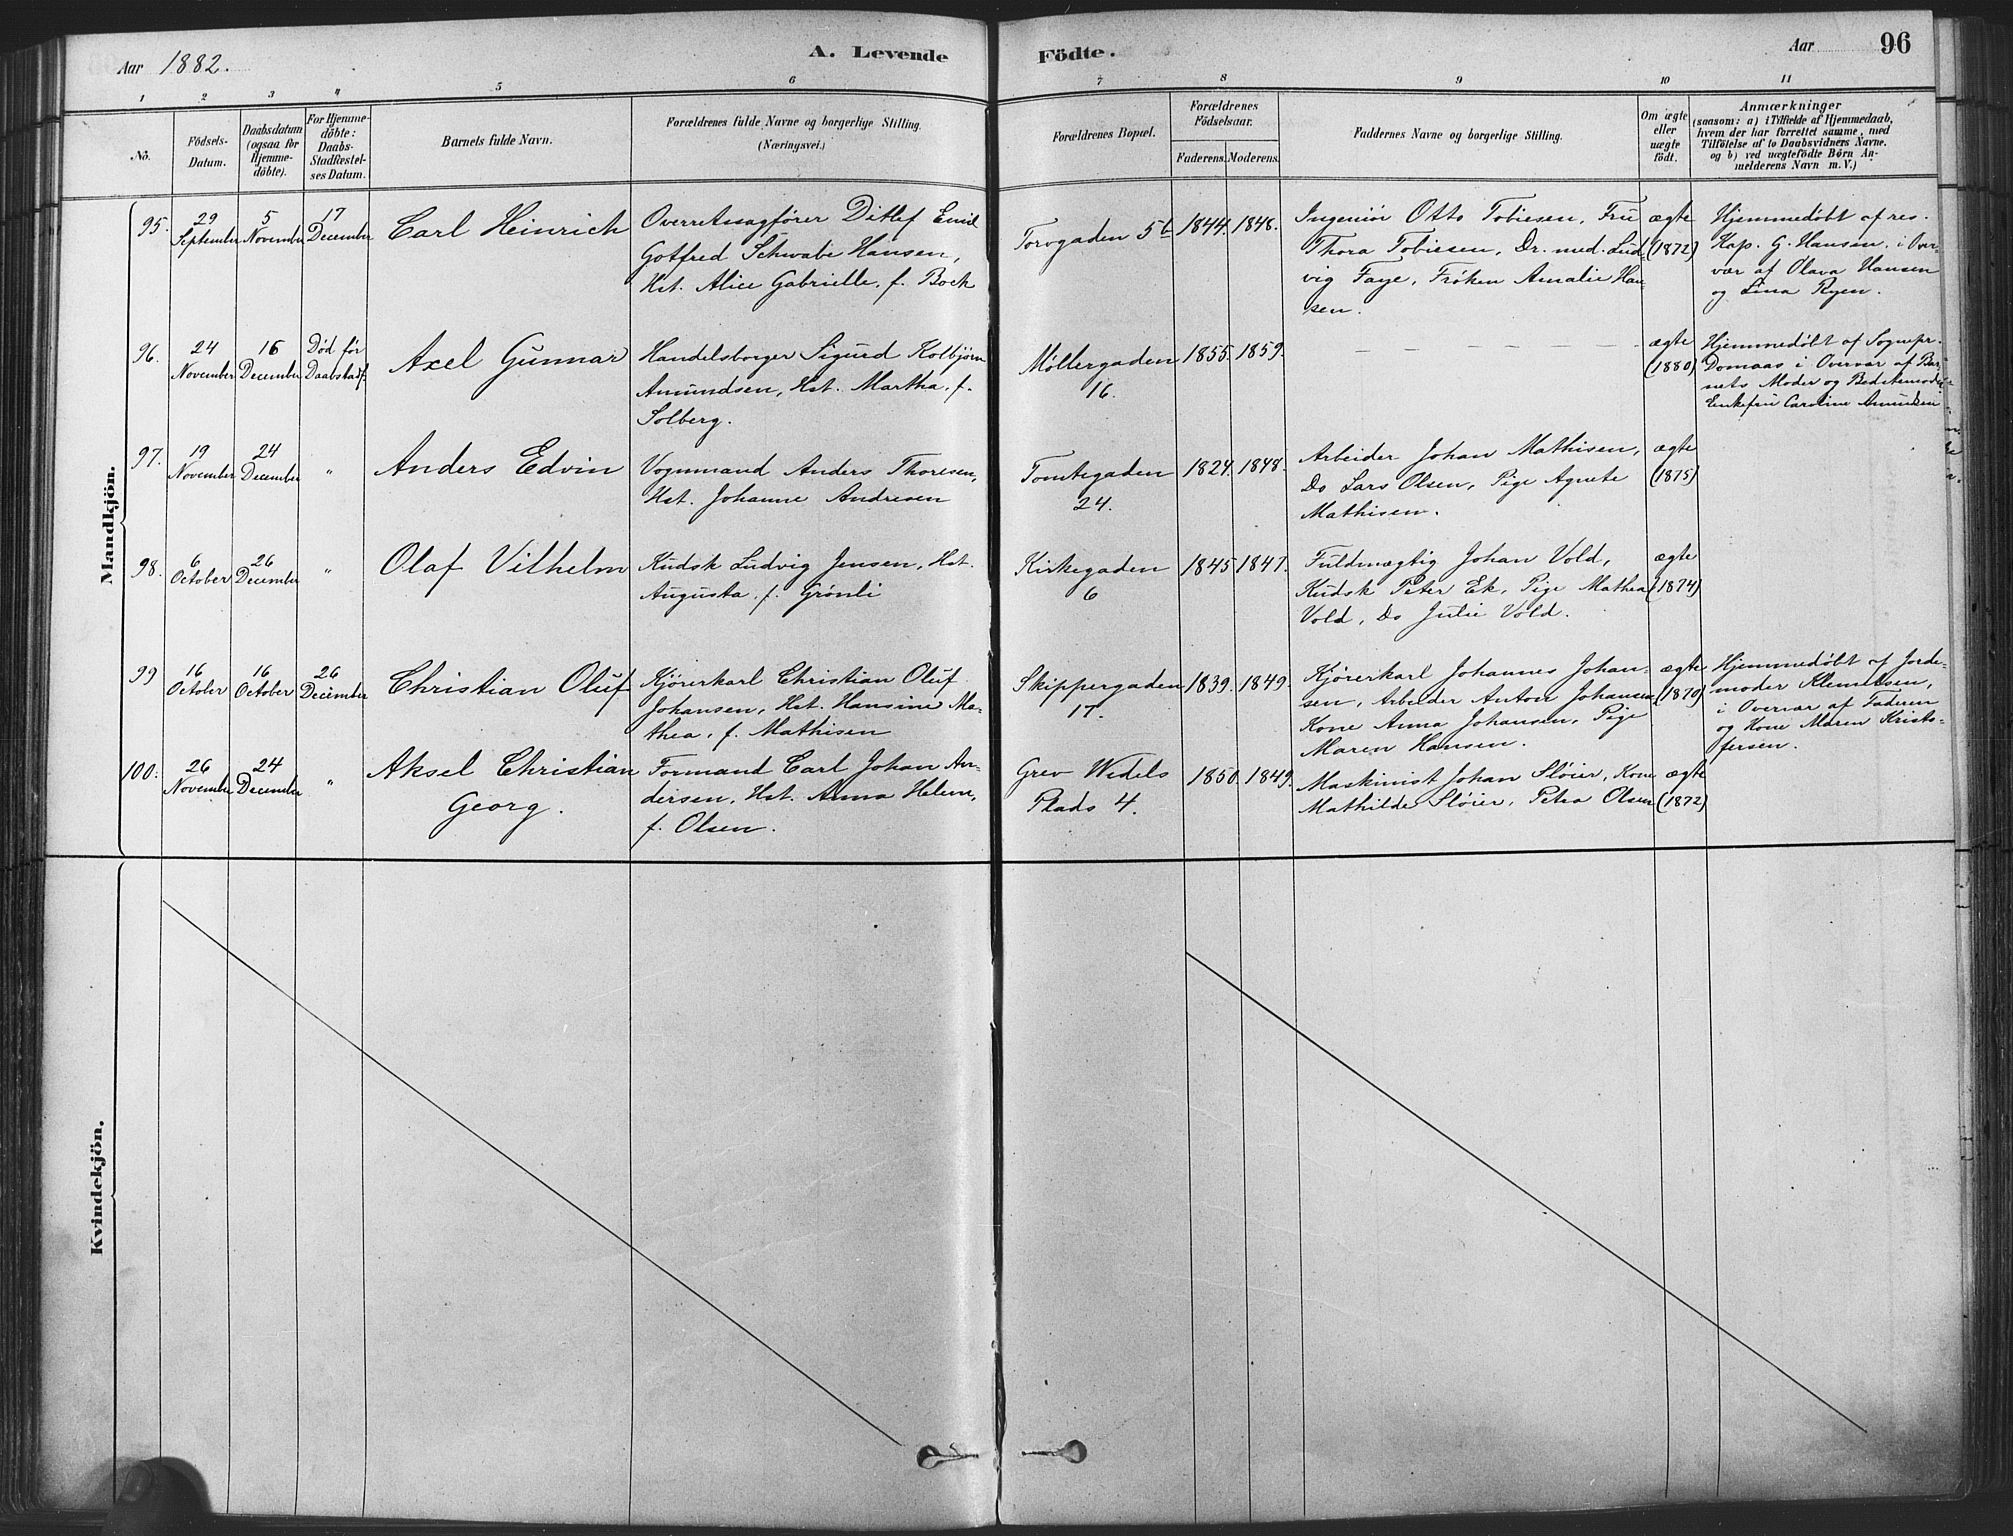 Aar 1882.
A. Levende Födte.
Aar 96
1 2 3 4 5 6 7 8 9 10 11
No.
Födsels-
Datum.
Daabsdatum
(ogsaa for
Hjemme-
döbte).
For Hjemme-
döbte:
Daabs-
Stadfæstel-
ses Datum.
Barnets fulde Navn.
Forældrenes fulde Navne og borgerlige Stilling.
(Næringsvei.)
Forældrenes Bopæl.
Forældrenes
Födselsaar.
Faderens. Moderens.
Faddernes Navne og borgerlige Stilling.
Om ægte
eller
uægte
født.
Anmærkninger
(saasom: a) i Tilfælde af Hjemmedaab,
hvem der har forrettet samme, med
Tilföielse af to Daabsvidners Navne.
og b) ved uægtefödte Börn An-
melderens Navn m. V.)
Mandkjön.
95.
29
September
5
November
17
December
Carl Heinrich
Overretssagfører Ditlef Emil
Gotfred Schwabe Hansen,
Hst. Alice Gabrielle, f. Bock
Torvgaden 5b
1844. 1848.
Ingeniör Otto Tobiesen, Fru
Thora Tobiesen, Dr. med. Lud-
vig Faye, Frøken Amalie Han-
sen.
ægte
(1872)
Hjemmedøbt af res.
Kap. G. Hansen, i Over-
vær af Olava Hansen
og Lina Ryen.
96.
24
November
16
December
Død før
Daabstadf.
Axel Gunnar
Handelsborger Sigurd Kolbjørn
Amundsen, Hst. Martha, f.
Solberg.
Møllergaden
16.
1855. 1859.
— — — — — —
ægte
(1880)
Hjemmedøbt af Sognepr.
Domaas i Overvær af Bar-
nets Moder og Bedstemoder
Enkefru Caroline Amundsen
97.
19
November
24
December
"
Anders Edvin
Vognmand Anders Thoresen,
Hst. Johanne Andresen
Tomtegaden
24.
1824. 1848.
Arbeider Johan Mathisen,
Do Lars Olsen, Pige Agnete
Mathisen.
ægte
(1875)
98.
6
October
26
December
"
Olaf Vilhelm
Kudsk Ludvig Jensen, Hst.
Augusta, f. Grönli
Kirkegaden
6
1845 1847.
Fuldmægtig Johan Vold,
Kudsk Peter Ek, Pige Mathea
Vold, Do Julie Vold.
ægte
(1874)
99
16
October
16
October
26
December
Christian Oluf
Kjørerkarl Christian Oluf
Johansen, Hst. Hansine Ma-
thea, f. Mathisen
Skippergaden
17.
1839. 1849.
Kjörerkarl Johannes Johan-
sen, Arbeider Anton Johansen
Kone Anna Johansen, Pige
Maren Hansen.
ægte
(1870)
Hjemmedøbt af Jorde-
moder Klemetsen,
i Overvær af Faderen
og Kone Maren Kristo-
fersen.
100.
26
November
24
December
"
Aksel Christian
Georg.
Formand Carl Johan An-
dersen, Hst. Anna Helene,
f. Olsen.
Grev Wedels
Plads 4.
1850. 1849.
Maskinist Johan Sløier, Kone
Mathilde Sløier, Petra Olsen
ægte
(1872)
Kvindekjön.